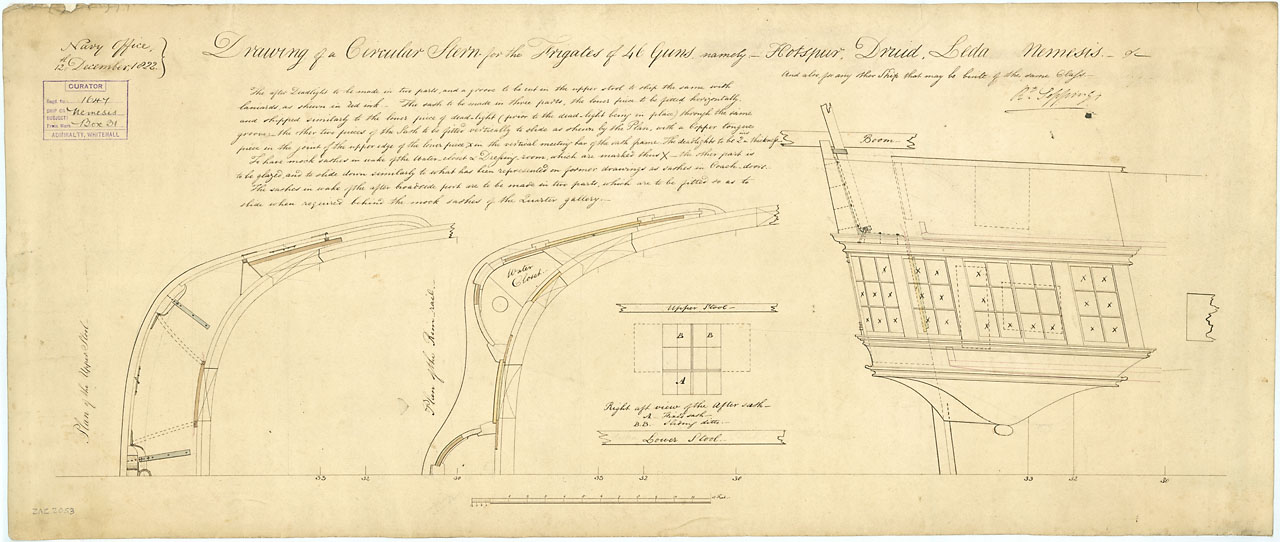 Navy Office,
12th December, 1822
Drawing of a Circular Stern for the Frigates of 46 Guns namely Hotspur, Druid, Leda Nemesis &
And also for any other Ship that may be built of the same Class
Rt. Seppings
CURATOR
Regd. No. 1647
SHIP OR SUBJECT: Nemesis
Box 31
ADMIRALTY, WHITEHALL
The after Deadlight to be made in two parts, and a groove to be cut in the upper stool to ship the same with
laniards, as shewn in red ink. The sash to be made in three parts, the lower piece to be fitted horizontally
and shipped similarly to the lower piece of dead-light (prior to the dead-light being in place) through the same
groove, the other two pieces of the Sash to be fitted vertically to slide as shewn by the Plan, with a Copper tongue
piece in the joint of the upper edge of the lower piece & in the vertical meeting bar of the sash frame. The deadlights to be 2 in thickness
To have mock sashes in wake of the Water closet & Dressing room, which are marked thus X the other part is
to be glazed, and to slide down similarly to what has been represented in former drawings as sashes in Coach doors.
The sashes in wake of the after broadside port are to be made in two parts, which are to be fitted so as to
slide when required behind the mock sashes of the Quarter gallery.
Boom
Plan of the Upper Stool
Plan of the Stern rail
Water
Closet
Upper Stool
B B
A
Right aft view of the After sash
A
B.B. Sliding ditto
Lower Stool
33 32 30 33 32 30 33 32 30
ZAZ 2053